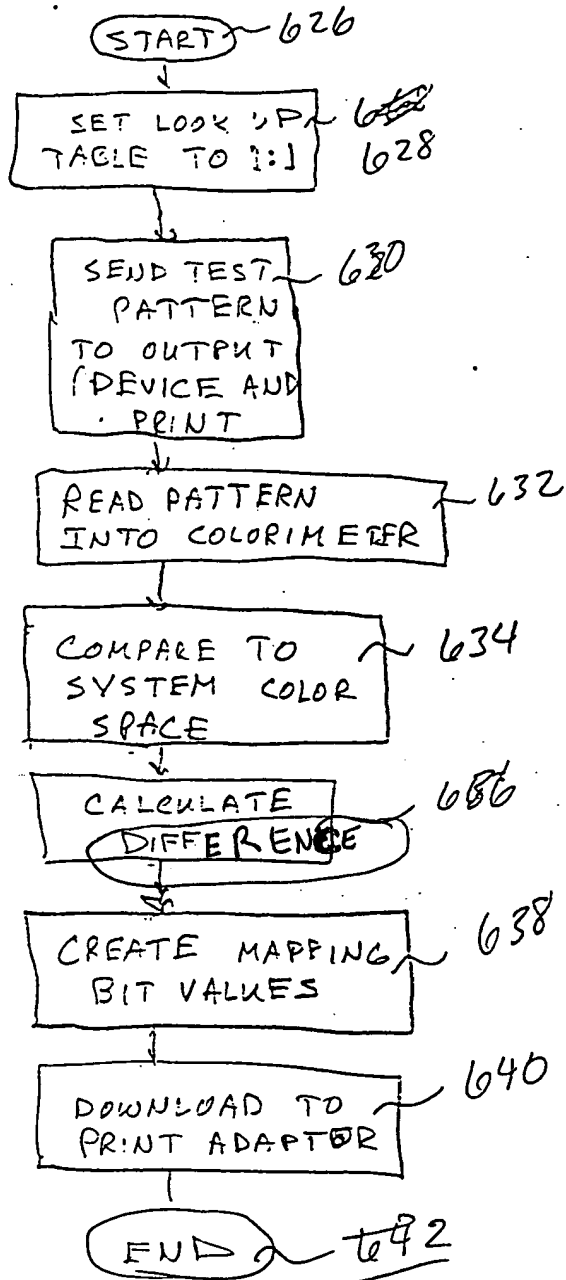 START 626
SET LOOK UP
TABLE TO 1:1 628
SEND TEST 630
PATTERN
TO OUTPUT
DEVICE AND
PRINT
READ PATTERN 632
INTO COLORIMETER
COMPARE TO 634
SYSTEM COLOR
SPACE
CALCULATE
DIFFERENCE
CREATE MAPPING 638
BIT VALUES
DOWNLOAD TO 640
PRINT ADAPTOR
END 642